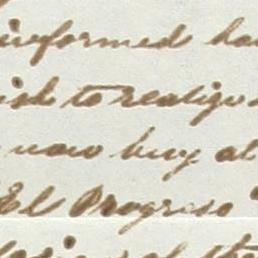 informed ha
ish to realize
now buy at
El Progreso